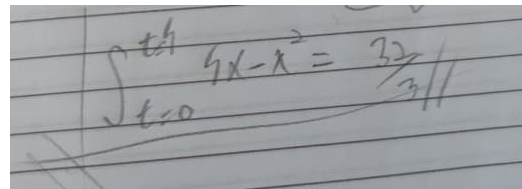 ∫_{t=0}^{t=4} 4x - x² = 32/3 //